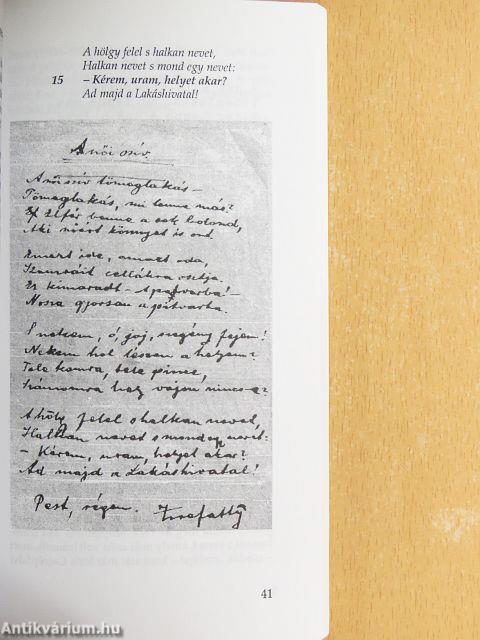 A hölgy felel s halkan nevet,
Halkan nevet s mond egy nevet:
15 – Kérem, uram, helyet akar?
Ad majd a Lakáshivatal!
A női szív.
A női szív tömeglakás –
Tömeglakás, mi lenne más?
Elfér benne a sok bolond,
Aki miért könnyet is ont.
Ezmert ide, amazt oda,
Szamráit cellákra osztja.
Ez kimaradt – a pitvarba! –
Nossza gyorsan a pitvarba.
S nekem, ó, jaj, szegény fejem!
Nekem hol lészen a helyem?
Tele kamra, tele pince,
Számomra hely vajon nincs-e?
A hölgy felel s halkan nevet,
Halkan nevet s mond egy nevet:
– Kérem, uram, helyet akar?
Ad majd a Lakáshivatal!
Pest, régen.
41
Antikvárium.hu